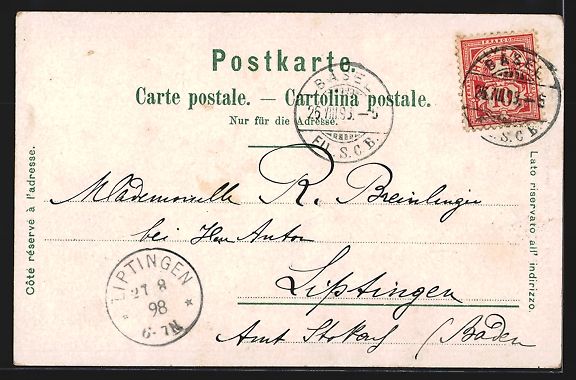 Postkarte.
Carte postale. — Cartolina postale.
Nur für die Adresse.
BASEL
26.VIII.98.—5
FIL. S.C.B.
FRANCO
HELVETIA
BASEL
26.VIII.98.—5
S.C.B.
Côté réservé à l'adresse.
Lato riservato all' indirizzo.
Mademoiselle R. Breinlinger
bei Herr Anton
Liptingen
Amt Stokach (Baden
LIPTINGEN
27 8
98
6-7N